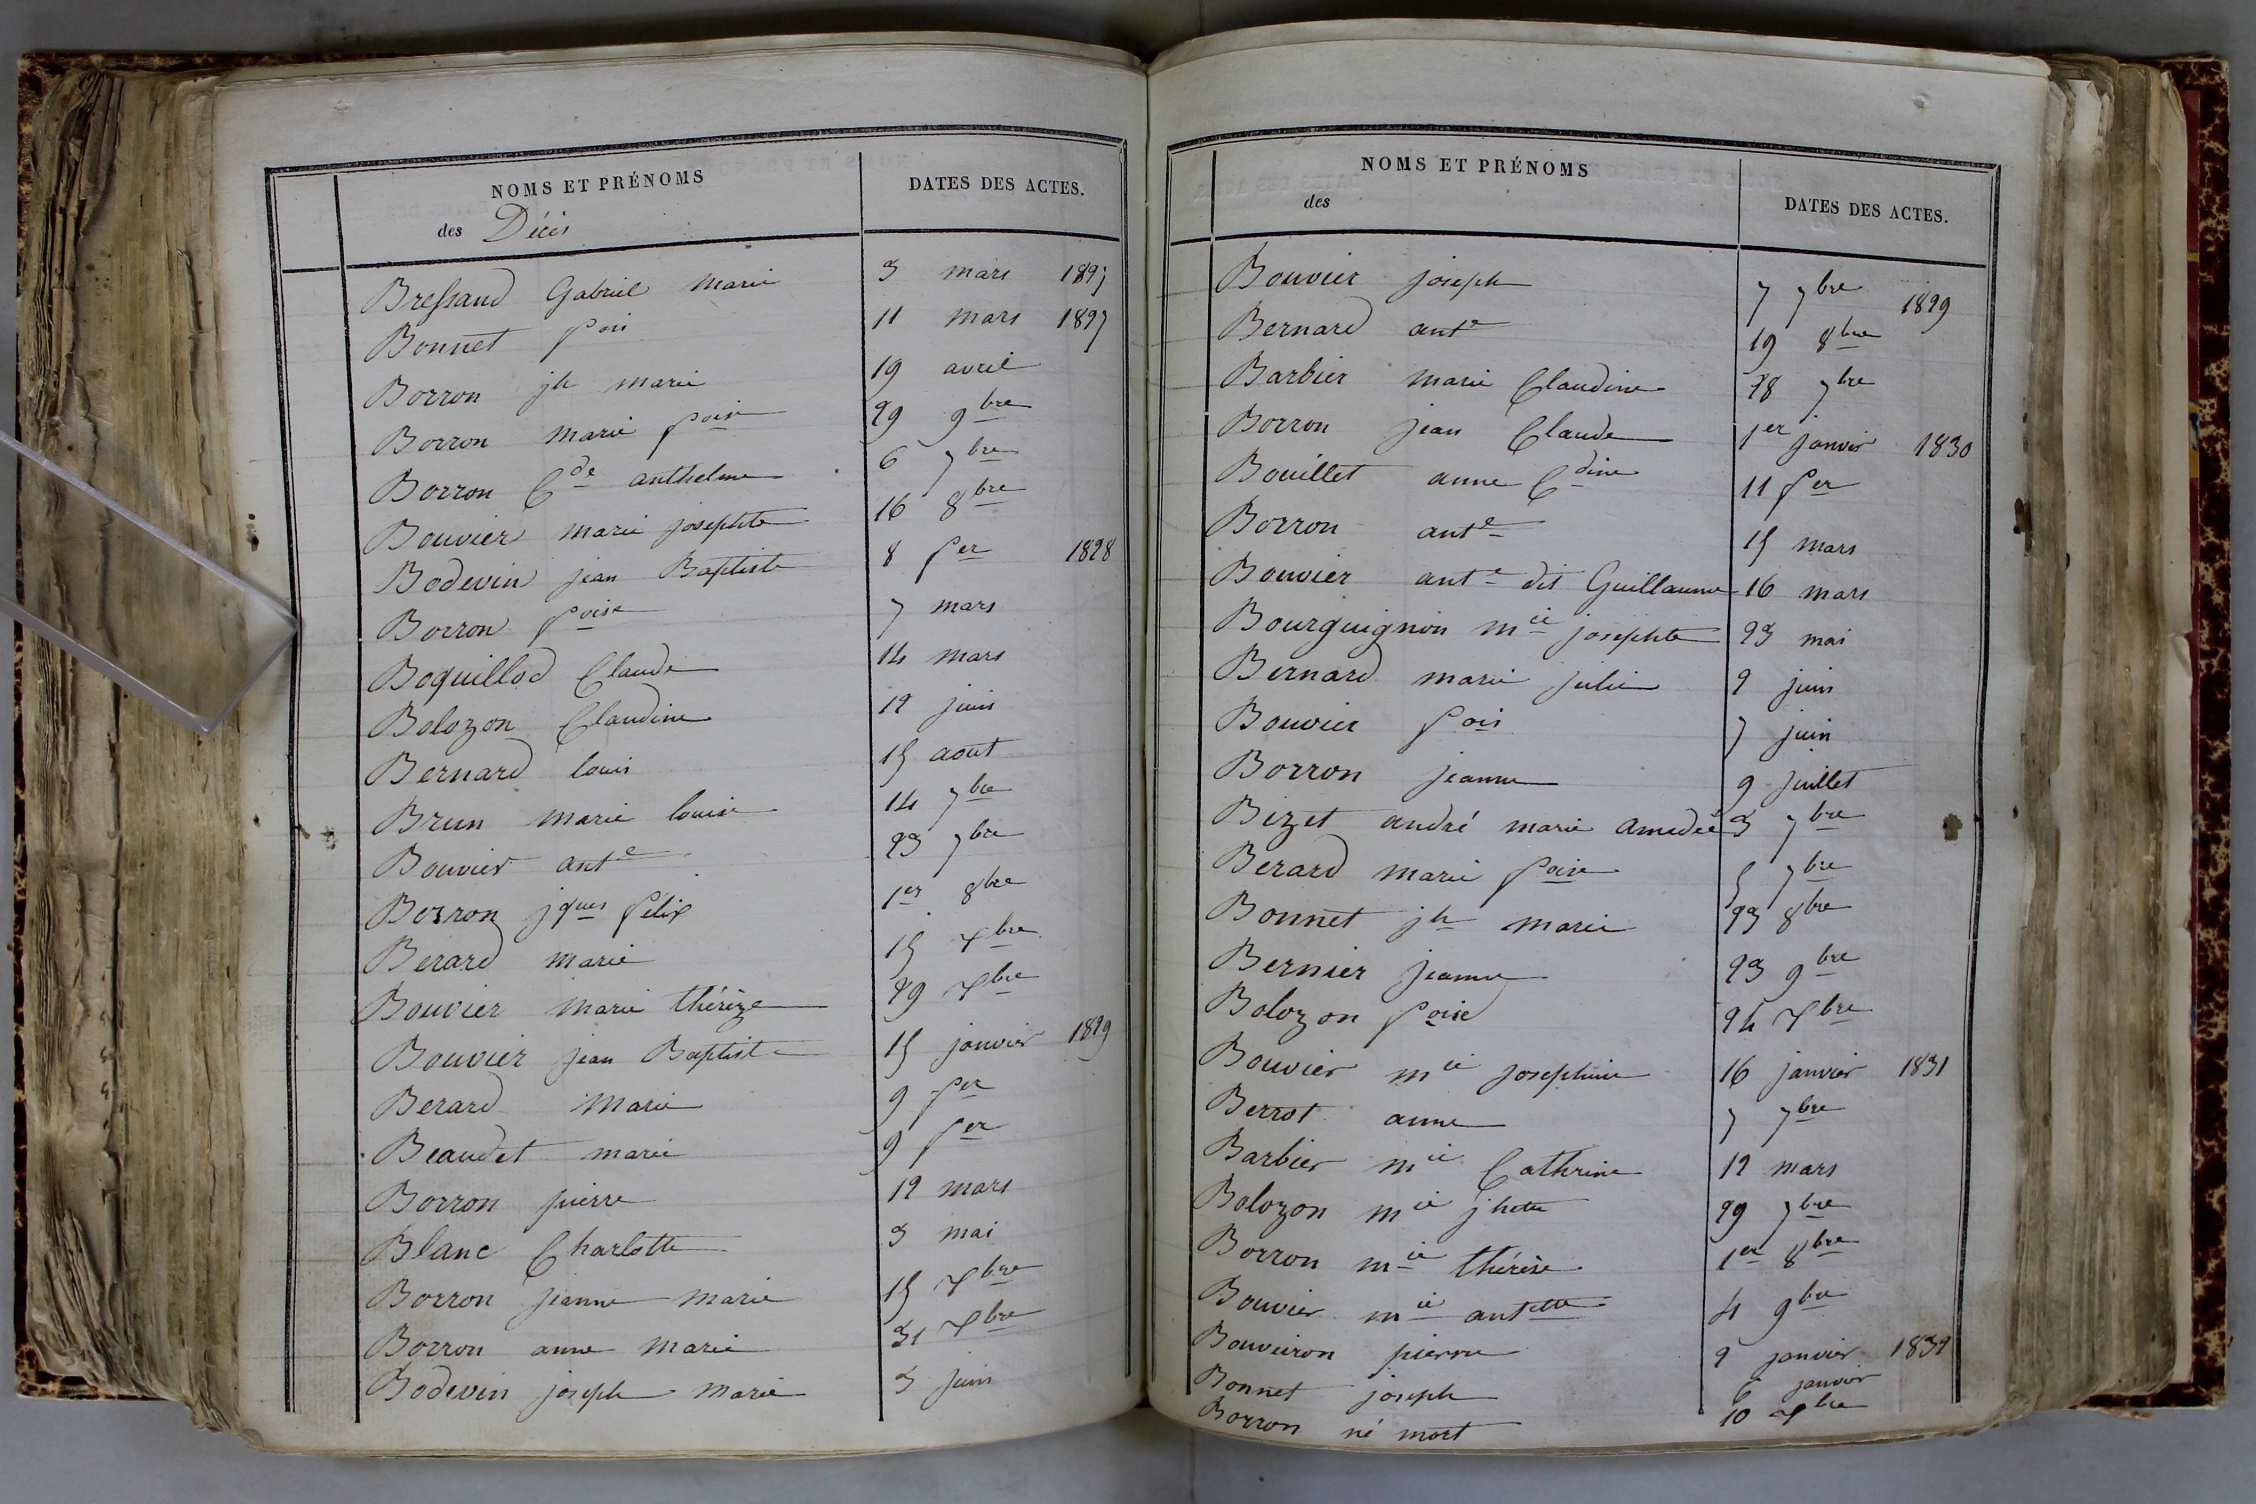 NOMS ET PRÉNOMS
des Décès
DATES DES ACTES.
Bressand Gabriel Marie 3 mars 1827
Bonnet fois 11 mars 1827
Borron jh marie 19 avril
Borron marie foise 29 9bre
Borron Cde anthelme 6 7bre
Bouvier marie josephte 16 8bre
Bodevin jean Baptiste 8 fer 1828
Borron foise 7 mars
Boquillod Claude 14 mars
Bolozon Claudine 12 juin
Bernard louis 15 aout
Brun marie louise 14 7bre
Bouvier ante 23 7bre
Borron jques félix 1er 8bre
Berard marie 15 Xbre
Bouvier marie thérèze 29 Xbre
Bouvier jean Baptiste 15 janvier 1829
Berard Marie 9 fer
Beaudet marie 9 fer
Borron pierre 12 mars
Blanc Charlotte 3 mai
Borron jeanne marie 15 Xbre
Borron anne Marie 31 Xbre
Bodevin joseph Marie 3 juin
NOMS ET PRÉNOMS
des
DATES DES ACTES.
Bouvier joseph 7 7bre 1829
Bernard ante 19 8bre
Barbier marie Claudine 28 7bre
Borron jean Claude 1er janvier 1830
Bouillet anne Cdine 11 fer
Borron ante 15 mars
Bouvier ante dit Guillaume 16 mars
Bourguignon mie josephte 23 mai
Bernard marie julie 2 juin
Bouvier fois 7 juin
Borron jeanne 9 juillet
Bizet andré marie amedée 3 7bre
Berard marie foise 5 7bre
Bonnet jh marie 23 8bre
Bernier jeanne 23 9bre
Bolozon foise 24 Xbre
Bouvier mie josephine 16 janvier 1831
Berrot anne 7 7bre
Barbier mie Cathrine 12 mars
Bolozon mie jhette 29 7bre
Borron mie thérèse 1er 8bre
Bouvier mie antette 4 9bre
Bouveiron pierre 2 janvier 1832
Bonnet joseph 6 janvier
Borron né mort 10 Xbre